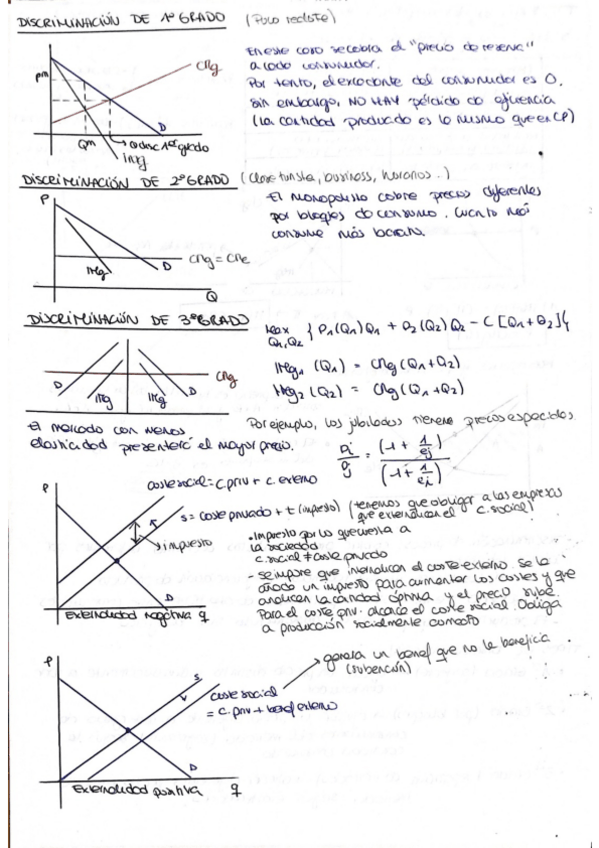 DISCRIMINACIÓN DE 1º GRADO (Poco realista)
En este caso se cobra el "precio de reserva"
a cada consumidor.
Por tanto, el excedente del consumidor es 0,
sin embargo, NO HAY pérdida de eficiencia
(la cantidad producida es la misma que en CP)
CMg
Pm
D
Qm
Q disc 1º grado
IMg
DISCRIMINACIÓN DE 2º GRADO (clase turista, business, horarios..)
El monopolista cobra precios diferentes
por bloques de consumo. Cuanto más
consume más barato.
P
CMg = CMe
IMg
D
Q
DISCRIMINACIÓN DE 3º GRADO
Max { P1(Q1)Q1 + P2(Q2)Q2 - C[Q1+Q2]}
Q1,Q2
IMg1 (Q1) = CMg(Q1+Q2)
IMg2 (Q2) = CMg(Q1+Q2)
CMg
D
IMg
IMg
D
Por ejemplo, los jubilados tienen precios especiales.
El mercado con menos
elasticidad presentará el mayor precio.
Pi/Pj = (-1 + 1/ej)/(-1 + 1/ei)
coste social = c.priv + c. externo
P
S = coste privado + t (impuesto) (tenemos que obligar a las empresas
que externalicen el c. social)
impuesto
• Impuesto por lo que cuesta a
la sociedad
c. social ≠ coste privado
- Se impone que internalicen el coste externo. Se le
añade un impuesto para aumentar los costes y que
analicen la cantidad óptima y el precio sube.
Para el coste priv. alcance el coste social. Obliga
a producción socialmente correcta
D
Externalidad negativa q
P
genera un benef que no le beneficia
(subvención)
S
coste social
= c. priv + benef externo
D
Externalidad positiva q